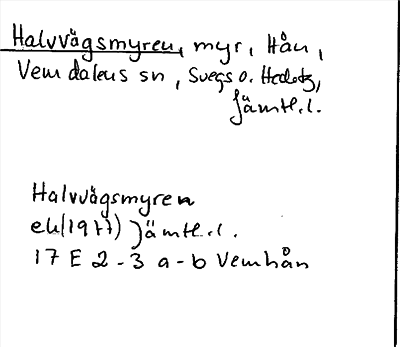 Halvvägsmyren, myr, Hån,
Vemdalens sn, Svegs o. Hedetg,
Jämtl.l.
Halvvägsmyren
ek(1977) Jämtl.l.
17 E 2-3 a-b Vemhån